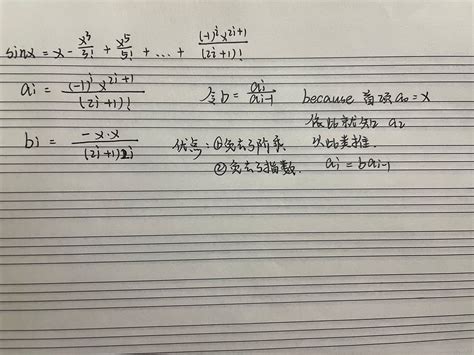 sinx = x - x³/3! + x⁵/5! + ... + (-1)ⁱx²ⁱ⁺¹/(2i+1)!
ai = (-1)ⁱx²ⁱ⁺¹/(2i+1)! 令b = ai/ai-1 because 首项a₀=x
依次就知a₂
bi = -x·x/(2i+1)2i 优点:①免去了阶乘 以此类推.
②免去了指数. ai = bai-1